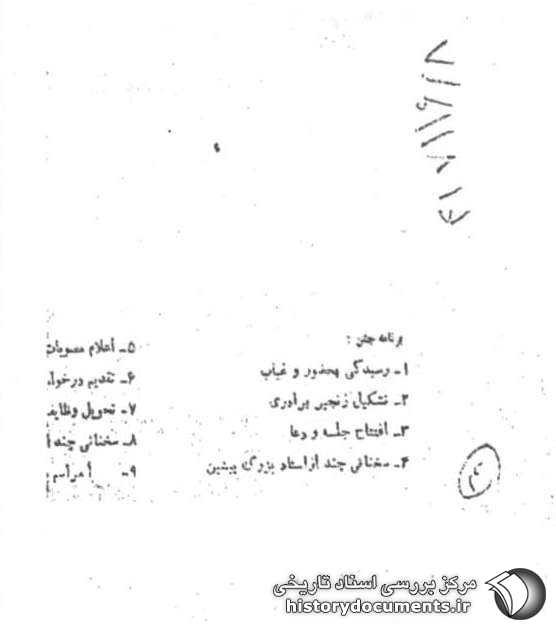 برنامه جشن :
۱ـ رسیدگی بحضور و غیاب
۲ـ تشکیل زنجیر برادری
۳ـ افتتاح جلسه و دعا
۴ـ سخنانی چند از استاد بزرگ پیشین
۵ـ اعلام مصوبات
۶ـ تقدیم
۷ـ تحویل وظایف
۸ـ سخنانی چند
۹ـ مراسم
مرکز بررسی اسناد تاریخی
historydocuments.ir